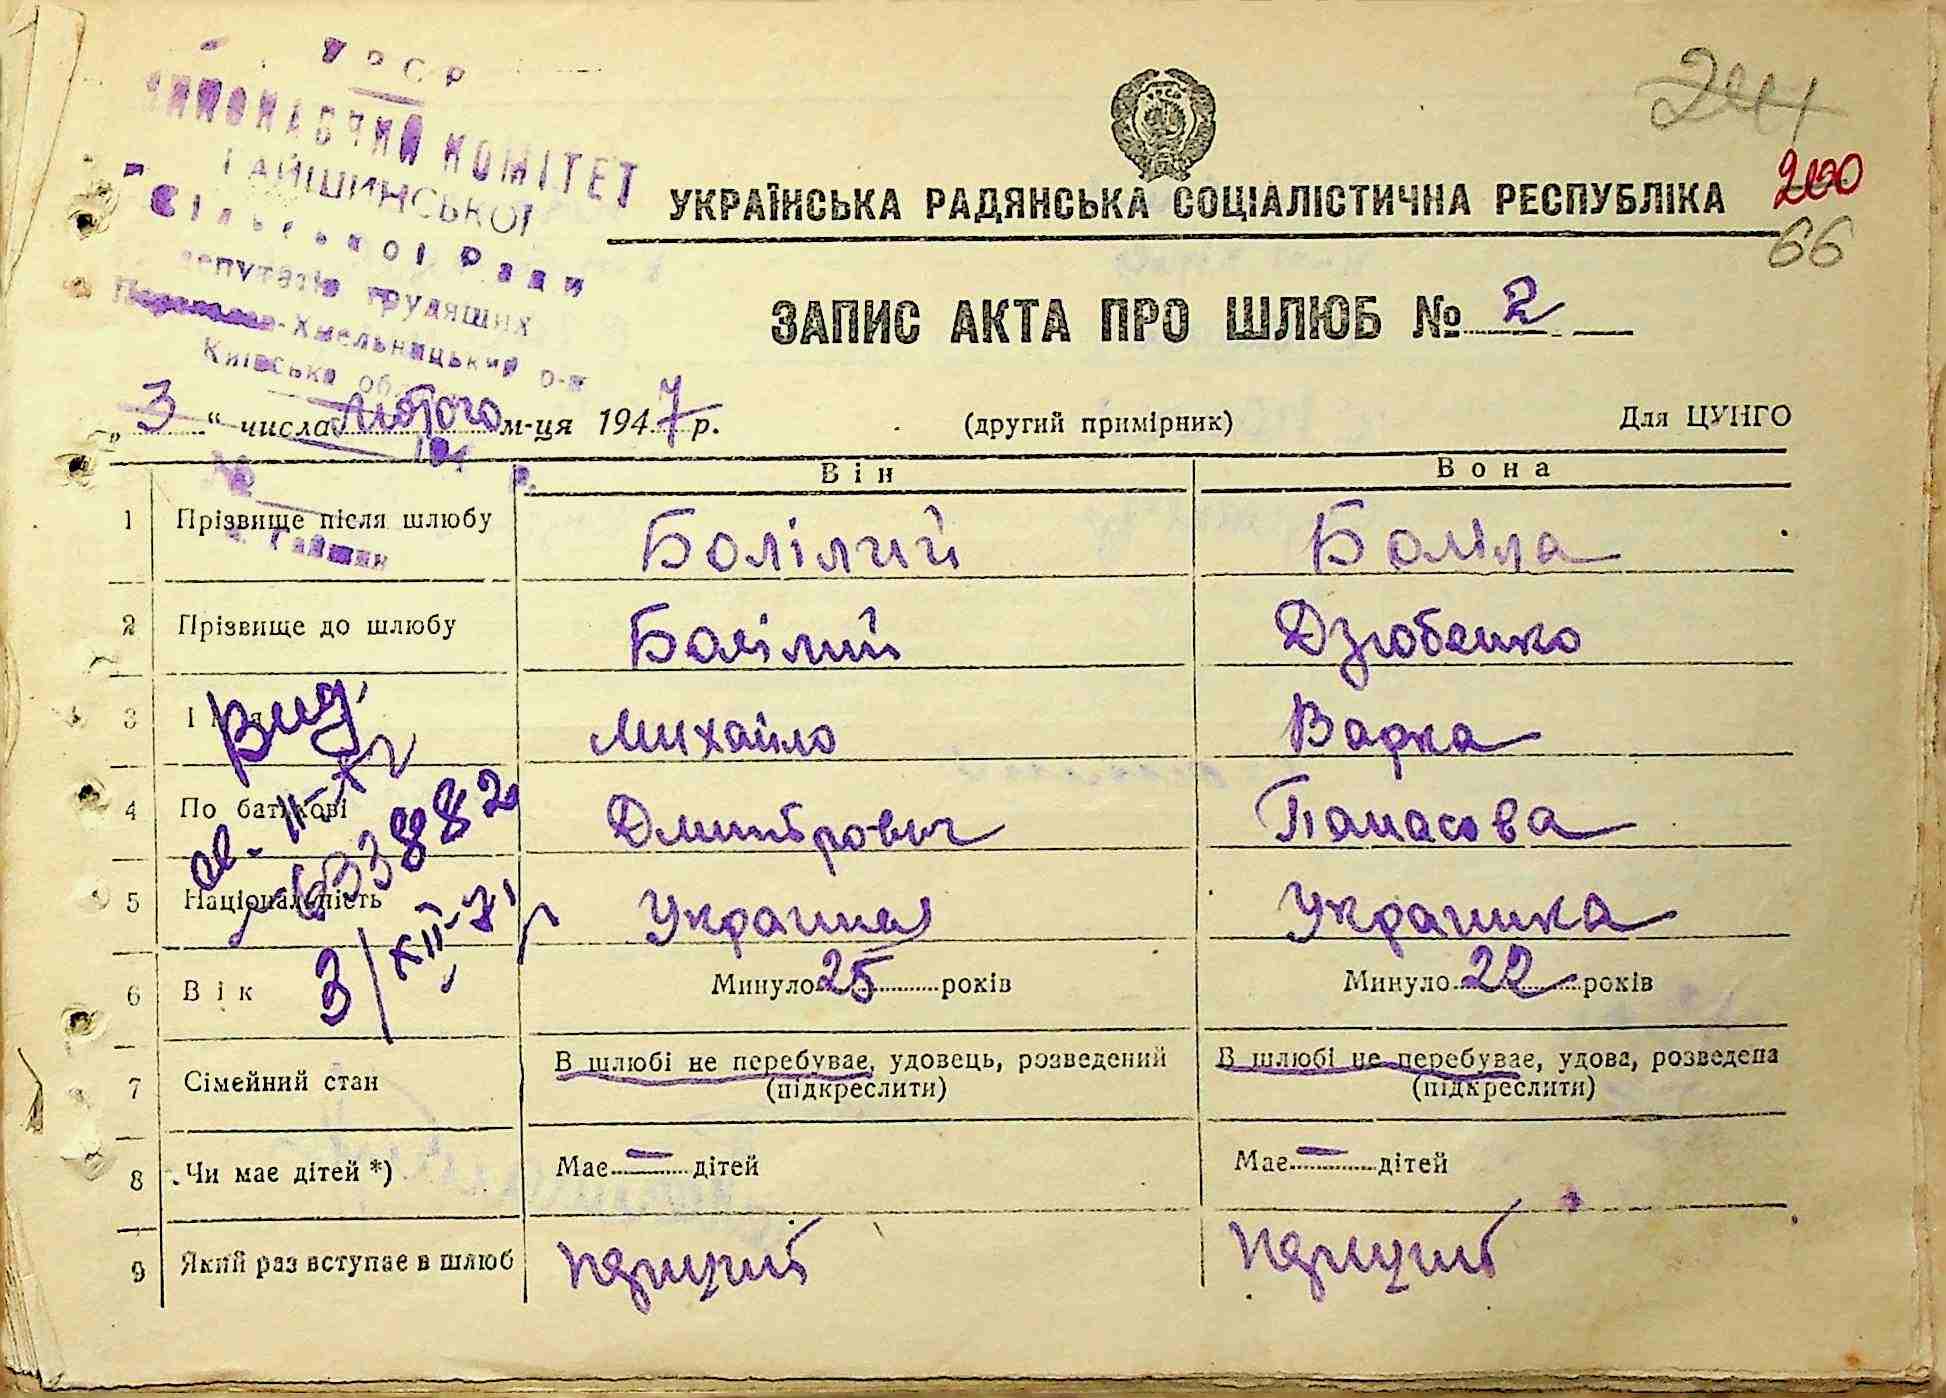 УРСР
ВИКОНАВЧИЙ КОМІТЕТ
ГАЙШИНСЬКОЇ
Сільської Ради
депутатів трудящих
-Хмельницький р-н
Київська обл.
194 р.
№
с. Гайшин
241
200
66
УКРАЇНСЬКА РАДЯНСЬКА СОЦІАЛІСТИЧНА РЕСПУБЛІКА
ЗАПИС АКТА ПРО ШЛЮБ № 2
„ 3 “ числа Лютого м-ця 1947 р. (другий примірник) Для ЦУНГО
Він Вона
1 Прізвище після шлюбу Болілий Боліла
2 Прізвище до шлюбу Болілий Дзюбенко
3 Ім'я Михайло Варка
4 По батькові Дмитрович Панасова
5 Національність Украинец Украинка
6 Вік Минуло 25 років Минуло 22 років
7 Сімейний стан В шлюбі не перебуває, удовець, розведений В шлюбі не перебуває, удова, розведена
(підкреслити) (підкреслити)
8 Чи має дітей *) Має — дітей Має — дітей
9 Який раз вступає в шлюб
Вид.
3/XII-71 р